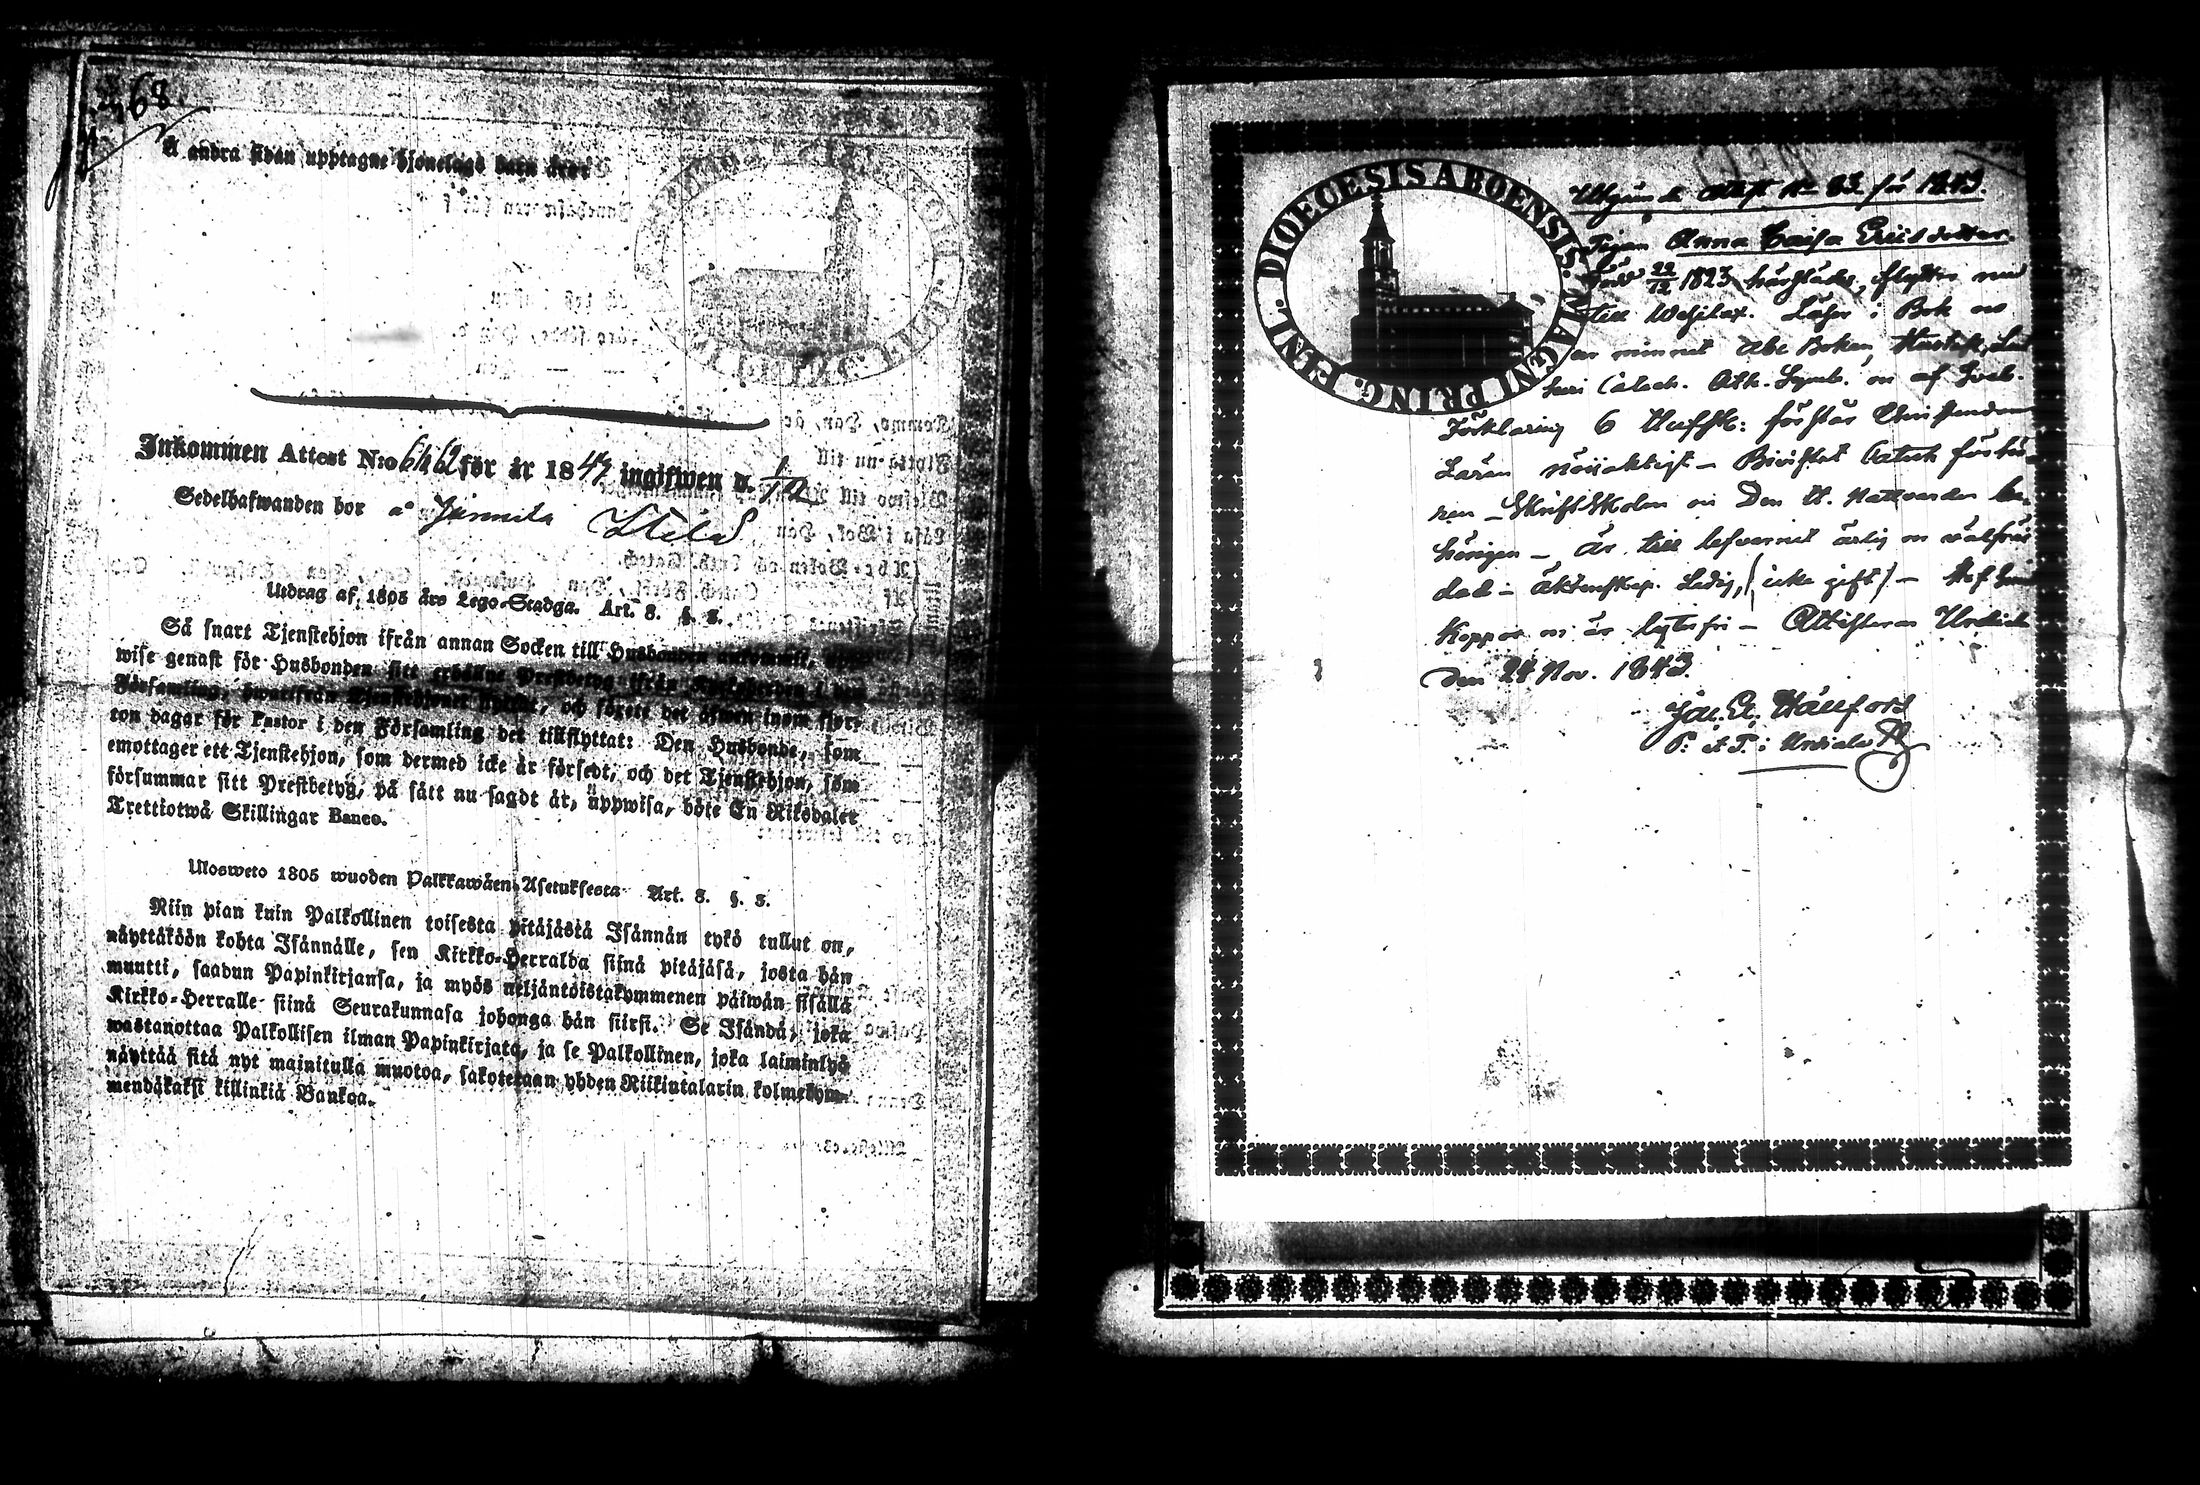 68.
Å andra sidan upptagne hjonelags barn äro:
Inkommen Attest N:o för år 1843 ingifwen d.
Sedelhafwanden bor å
Utdrag af 1805 års Lego-Stadga. Art. 8. §. 3.
Så snart Tjenstehjon ifrån annan Socken till Husbonden ankommit,
wise genast för Husbonden sitt erhållne Prestbetyg ifrån Kyrkoherden i den
Församling, hwarifrån Tjenstehjonet flyttat, och förete det äfwen inom fjor-
ton dagar för Pastor i den Församling det tillflyttat: Den Husbonde, som
emottager ett Tjenstehjon, som dermed icke är försedt, och det Tjenstehjon, som
försummar sitt Prestbetyg, på sätt nu sagdt är, uppwisa, böte En Riksdaler
Trettiotwå Skillingar Banco.
Ulosweto 1805 wuoden Palkkawäen Asetuksesta Art. 8. §. 3.
Niin pian kuin Palkollinen toisesta pitäjästä Isännän tykö tullut on,
näyttäköön kohta Isännälle, sen Kirkko-Herralda siinä pitäjäsä, josta hän
muutti, saadun Papinkirjansa, ja myös neljäntöistakymmenen päiwän sisällä
Kirkko-Herralle siinä Seurakunnasa johonga hän siirsi. Se Isändä, joka
wastanottaa Palkollisen ilman Papinkirjata, ja se Palkollinen, joka laiminlyö
näyttää sitä nyt mainitulla muotoa, sakotetaan yhden Riikintalarin kolmekym-
mendäkaksi killinkiä Bankoa.
DIOECESIS ABOENSIS. MAGNI PRINC. FINL.
Utgående Attest No 83 för 1843.
Pigan Anna Caisa Ericsdotter
född 22/12 1823 härstädes, flyttar nu
till Wehilax. Läser i Bok och
ur minnet Abc Boken, Hustafl, Lut
heri Catech. Ath. Symb. och af Sveb.
Förklaring 6 Hufst: förstår Christendoms
Läran nöjaktigt – Bivistat Catech förhö-
ren – Skriftskolan och Den H. Nattvarden
– är till lefvernet ärlig och välfräj
dad – äktenskap. Ledig, (icke gift) – Haft
Koppor och är lytesfri – Attesterar Urdiala
den 24 Nov. 1843.
P. et P. i Urdiala